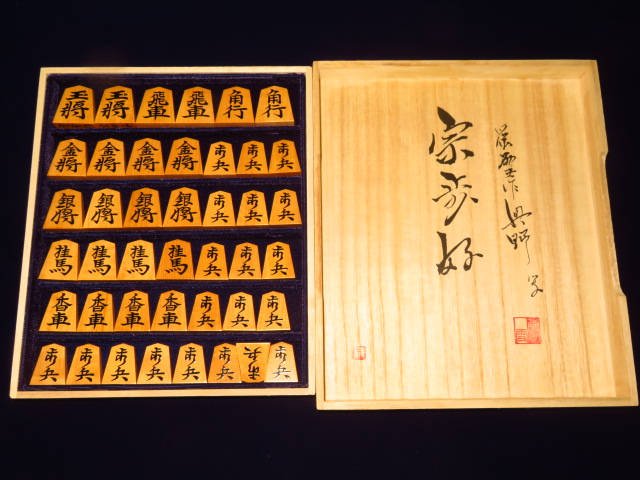 玉将 玉将 飛車 飛車 角行 角行
金将 金将 金将 金将 歩兵 歩兵 歩兵
銀将 銀将 銀将 銀将 歩兵 歩兵 歩兵
桂馬 桂馬 桂馬 桂馬 歩兵 歩兵 歩兵
香車 香車 香車 香車 歩兵 歩兵 歩兵
歩兵 歩兵 歩兵 歩兵 歩兵 歩兵 歩兵 歩兵
作 奥野 写
宗歩好